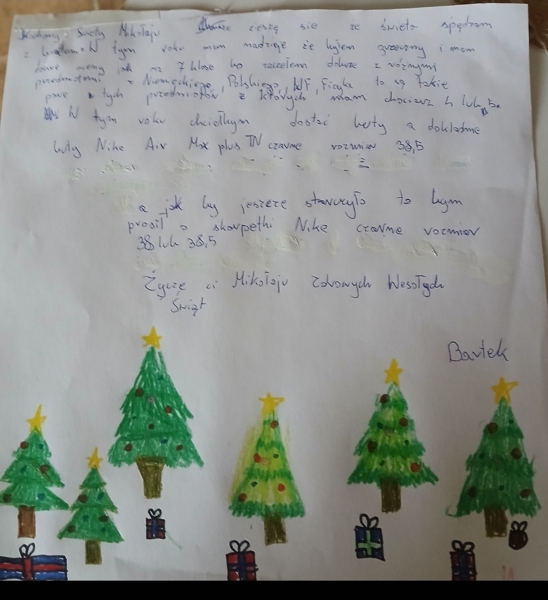 Kochany Święty Mikołaju cieszę się że święta spędzam
z bratem W tym roku mam nadzieje że byłem grzeczny i mam
dobre oceny jak na 7 klase bo zaczełem dobrze z różnymi
przedmiotami z Niemieckiego, Polskiego, WF, Fizyka to są takie
pare tych przedmiotów z których mam chociarz 4 lub 5.
W tym roku chciałbym dostać buty a dokładnie
buty Nike Air Max plus TN czarne rozmiar 38,5
a jak by jeszcze starczyło to bym
prosił o skarpetki Nike czarne rozmiar
38 lub 38,5
Życzę ci Mikołaju Zdrowych Wesołych
Świąt
Bartek